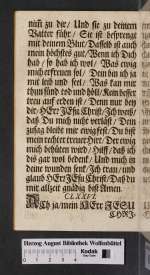 nim̃ zu dir/ Und sie zu deinem
Vatter führ/ So ist besprengt
mit deinem Blut/ Dasselb ist auch
mein höchstes gut. Wenn ich Dich
hab/ so hab ich wol/ Was ewig
mich erfreuen sol/ Dein bin ich ja
mit leib und seel/ Was kan mir
thun sünd tod und höll/ Kein besser
treu auf erden ist/ Denn nur bey
dir/ HErr JEsu Christ/ Ich weiß/
daß Du mich nicht verläst/ Dein
zusag bleibt mir ewig fest/ Du bist
mein rechter treuer Hirt/ Der ewig
mich behüten wird/ Hilff/ daß ich
dis gar wol bedenk/ Und mich in
deine wunden senk/ Ich trau/ und
glaub HErr JEsu Christ/ Daß Du
mir allzeit gnädig bist Amen.
CLXXVI.
ACh ja/ mein HErr JESU
CHRI-
Herzog August Bibliothek Wolfenbüttel
Kodak